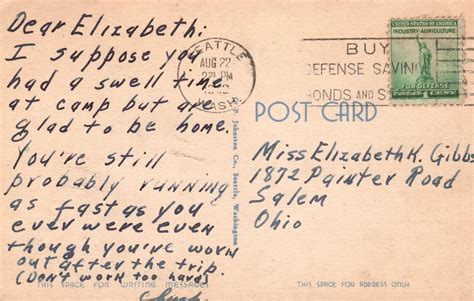 Dear Elizabeth:
I suppose you
had a swell time
at camp but are
glad to be home.
You're still
probably running
as fast as you
ever were even
though you're worn
out after the trip.
(Don't work too hard)
THIS SPACE FOR WRITING MESSAGES
Johnston Co., Seattle, Washington
SEATTLE
AUG 22
PM
WASH.
BUY
DEFENSE SAVINGS
BONDS AND
INDUSTRY-AGRICULTURE
FOR DEFENSE
1 CENT
POST CARD
Miss Elizabeth K. Gibbs
1872 Painter Road
Salem
Ohio
THIS SPACE FOR ADDRESS ONLY